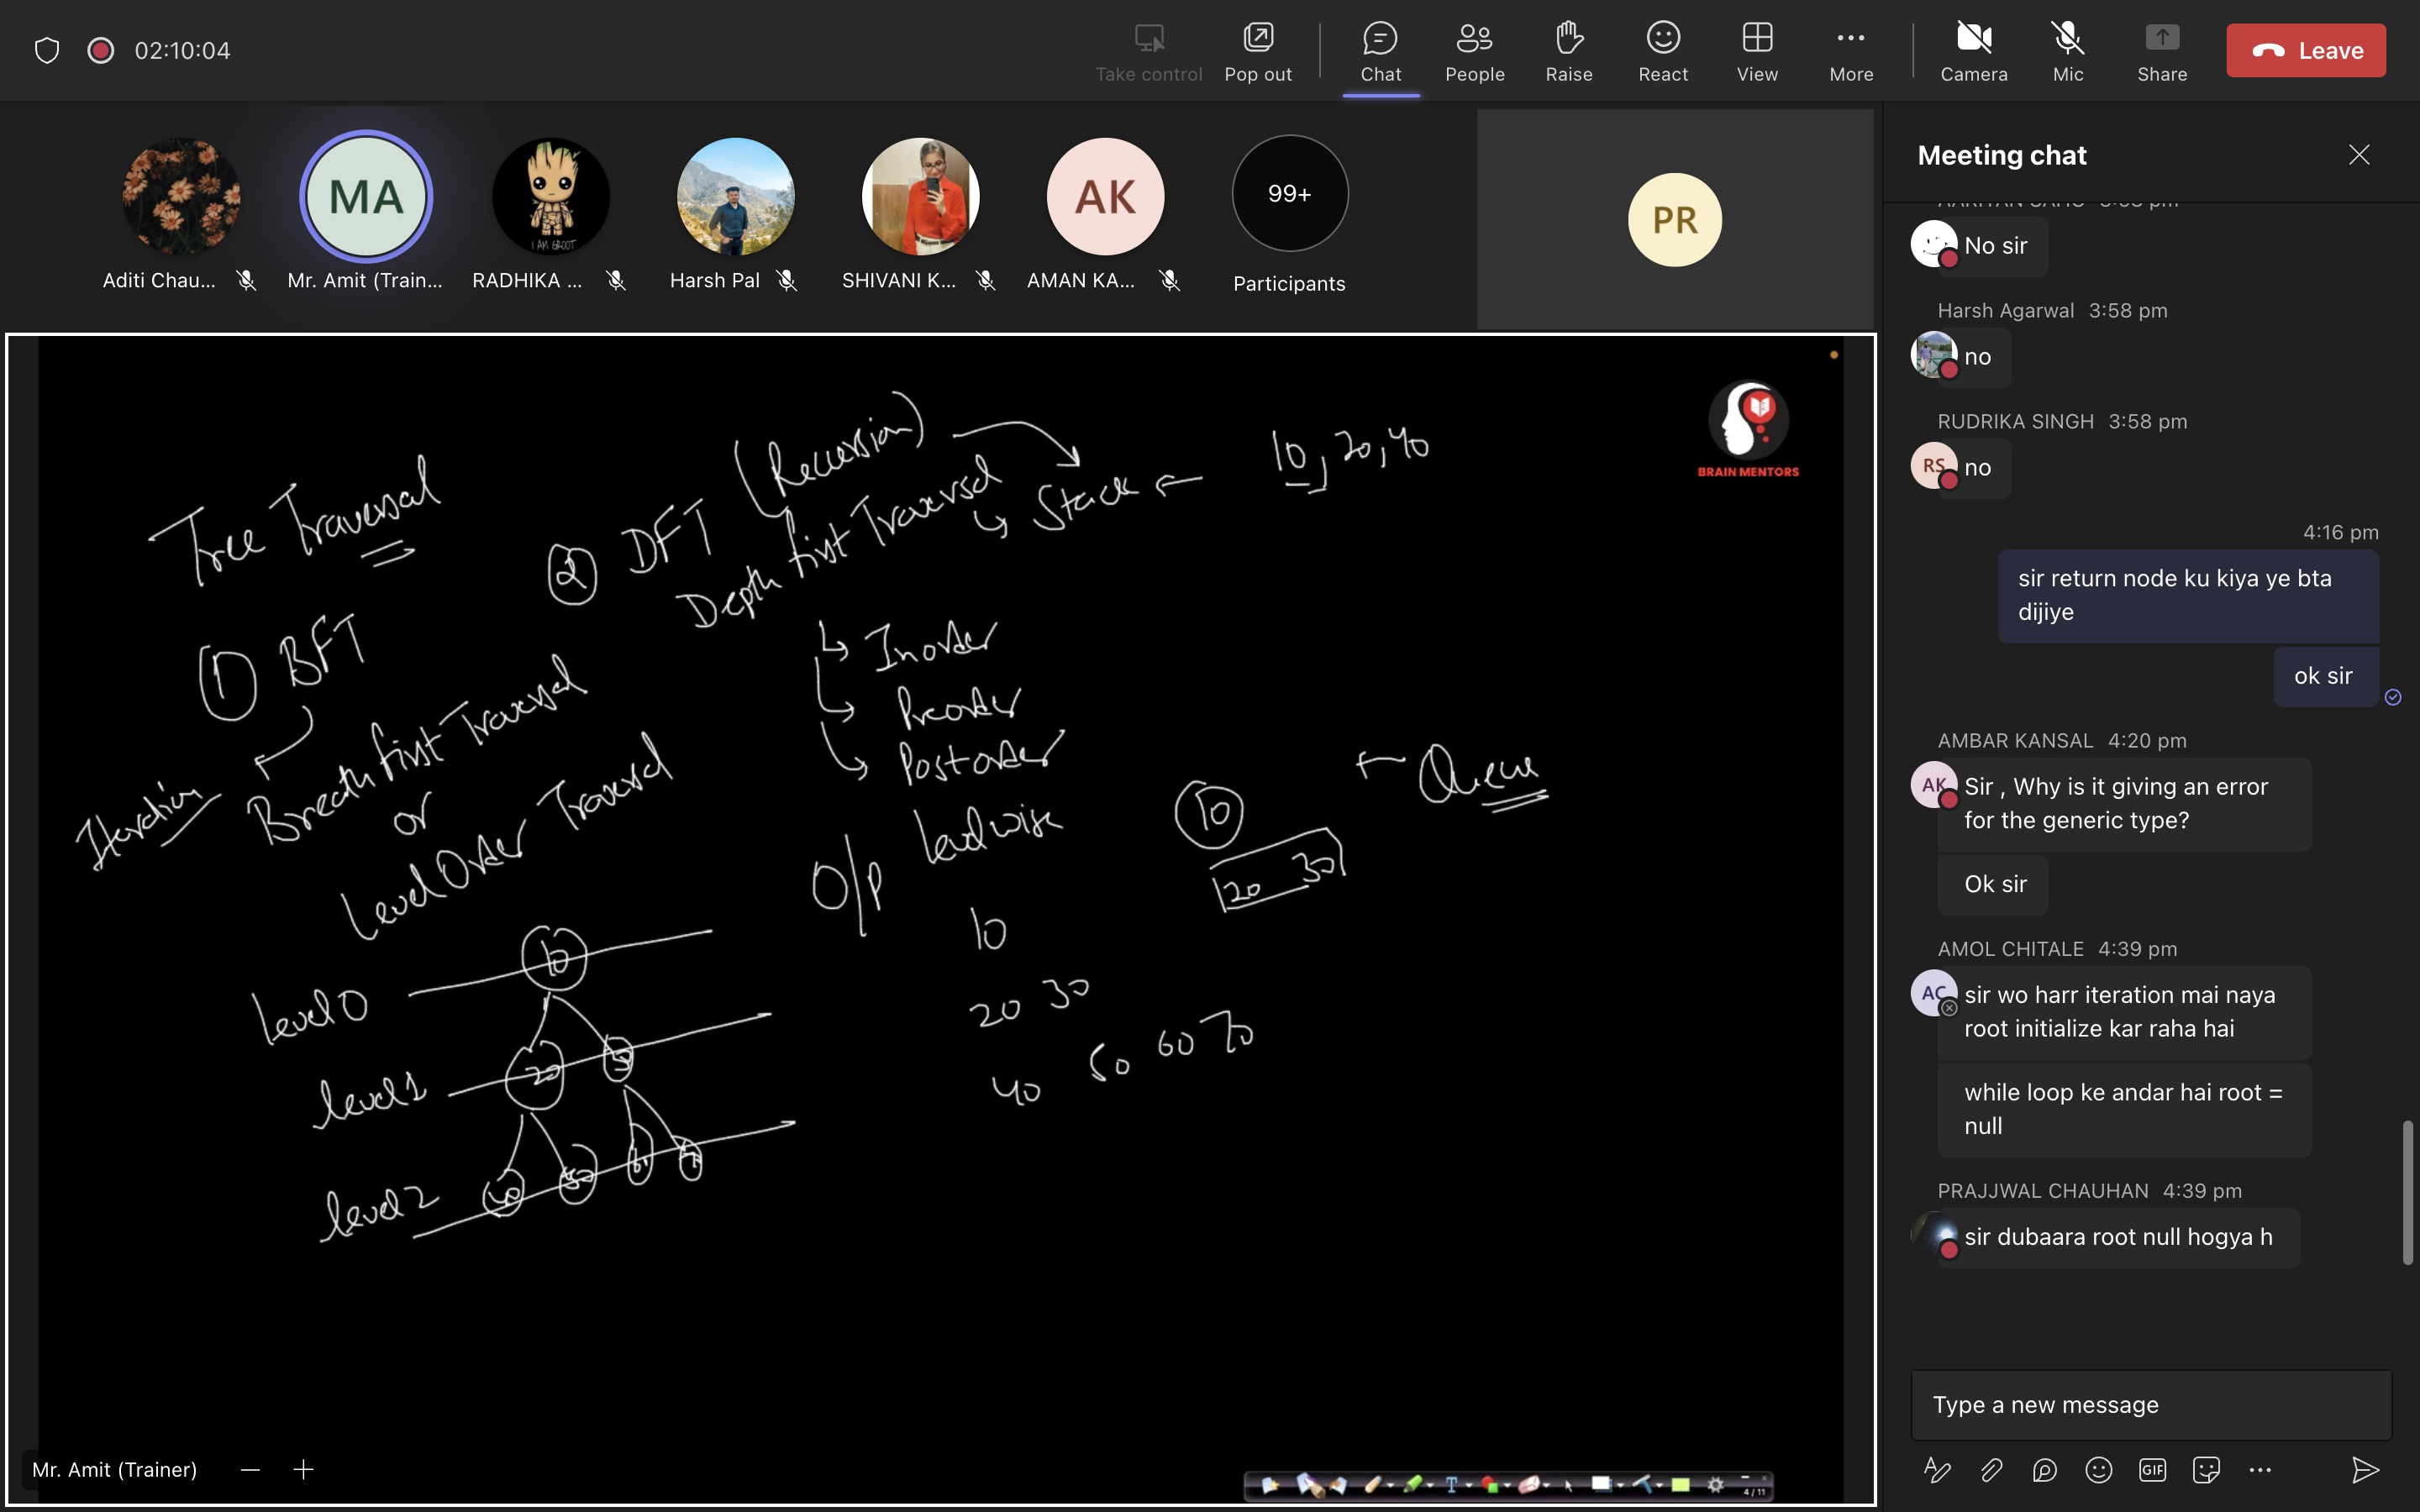 02:10:04
Take control
Pop out
Chat
People
Raise
React
View
More
Camera
Mic
Share
Leave
MA
I AM GROOT
AK
99+
PR
Aditi Chau...
Mr. Amit (Train...
RADHIKA ...
Harsh Pal
SHIVANI K...
AMAN KA...
Participants
BRAIN MENTORS
Tree Traversal
② DFT (Recursion)
Depth first Traversal
Stack
10, 20, 40
① BFT
Breath first Traversal
Iteration
or
Level Order Traversal
Inorder
Preorder
Postorder
O/P levelwise
10
20 30
40 50 60 70
10
20 30
Queue
level 0
10
level 1
20
level 2
40 50
Mr. Amit (Trainer)
4 / 11
Meeting chat
No sir
Harsh Agarwal 3:58 pm
no
RUDRIKA SINGH 3:58 pm
RS
no
4:16 pm
sir return node ku kiya ye bta
dijiye
ok sir
AMBAR KANSAL 4:20 pm
AK
Sir , Why is it giving an error
for the generic type?
Ok sir
AMOL CHITALE 4:39 pm
AC
sir wo harr iteration mai naya
root initialize kar raha hai
while loop ke andar hai root =
null
PRAJJWAL CHAUHAN 4:39 pm
sir dubaara root null hogya h
Type a new message
GIF